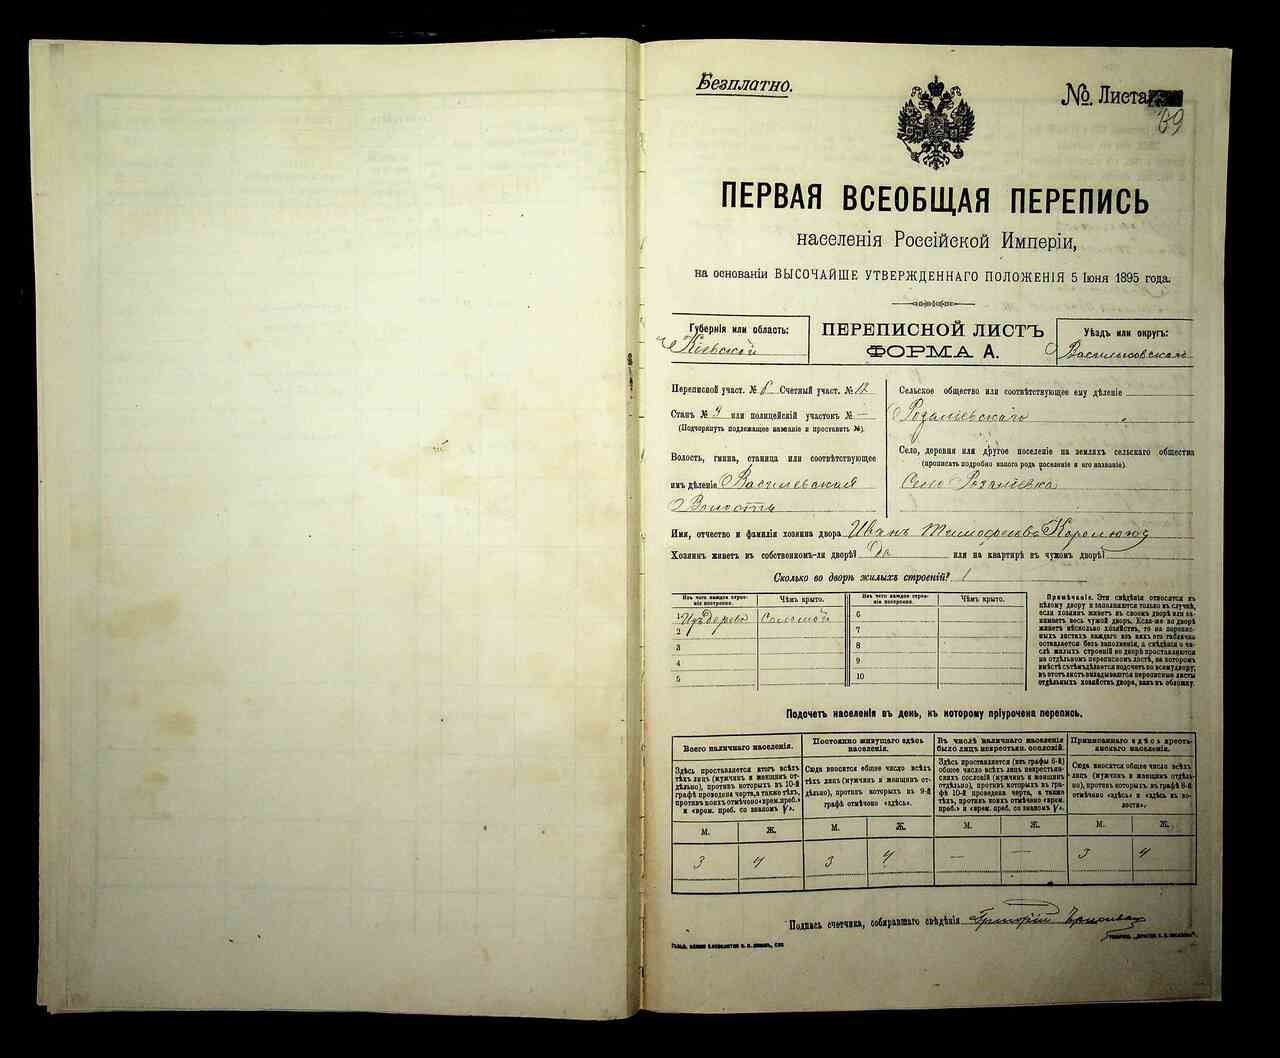 Безплатно.
№ Листа
69
ПЕРВАЯ ВСЕОБЩАЯ ПЕРЕПИСЬ
населенія Россійской Имперіи,
на основаніи ВЫСОЧАЙШЕ УТВЕРЖДЕННАГО ПОЛОЖЕНІЯ 5 Іюня 1895 года.
Губернія или область:
Кіевской
ПЕРЕПИСНОЙ ЛИСТЪ
ФОРМА А.
Уѣздъ или округъ:
Васильковскаго
Переписной участ. № 6 Счетный участ. № 12
Станъ № 3 или полицейскій участокъ № —
(Подчеркнуть подлежащее названіе и проставить №).
Волость, гмина, станица или соотвѣтствующее
имъ дѣленіе Василевская
Волость
Сельское общество или соотвѣтствующее ему дѣленіе
Розаліевскаго
Село, деревня или другое поселеніе на земляхъ сельскаго общества
(прописать подробно какого рода поселеніе и его названіе).
Село Розаліевка
Имя, отчество и фамилія хозяина двора Иванъ Тимофеевъ
Хозяинъ живетъ въ собственномъ-ли дворѣ? Да или на квартирѣ въ чужомъ дворѣ?
Сколько во дворѣ жилыхъ строеній? 1
Изъ чего каждое строе-
ніе построено.
Чѣмъ крыто.
Изъ чего каждое строе-
ніе построено.
Чѣмъ крыто.
1 Изъ дерева Соломой
2
3
4
5
6
7
8
9
10
Примѣчаніе. Эти свѣдѣнія относятся къ
цѣлому двору и заполняются только въ случаѣ,
если хозяинъ живетъ въ своемъ дворѣ или за-
нимаетъ весь чужой дворъ. Если-же во дворѣ
живетъ нѣсколько хозяйствъ, то на перепис-
ныхъ листахъ каждаго изъ нихъ эта табличка
оставляется безъ заполненія, а свѣдѣнія о чи-
слѣ жилыхъ строеній во дворѣ проставляются
на отдѣльномъ переписномъ листѣ, на которомъ
вмѣстѣ съ тѣмъ дѣлается подсчетъ по всему двору;
въ этотъ листъ вкладываются переписные листы
отдѣльныхъ хозяйствъ двора, какъ въ обложку.
Подсчетъ населенія въ день, къ которому пріурочена перепись.
Всего наличнаго населенія.
Здѣсь проставляется итогъ всѣхъ
тѣхъ лицъ (мужчинъ и женщинъ от-
дѣльно), противъ которыхъ въ 10-й
графѣ проведена черта, а также тѣхъ,
противъ коихъ отмѣчено «врем. преб.»
и «врем. преб. со знакомъ V».
Постоянно живущаго здѣсь
населенія.
Сюда вносится общее число всѣхъ
тѣхъ лицъ (мужчинъ и женщинъ от-
дѣльно), противъ которыхъ въ 9-й
графѣ отмѣчено «здѣсь».
Въ числѣ наличнаго населенія
было лицъ некрестьян. сословій.
Здѣсь проставляется (изъ графы 6-й)
общее число всѣхъ лицъ некрестьян-
скихъ сословій (мужчинъ и женщинъ
отдѣльно), противъ которыхъ въ гра-
фѣ 10-й проведена черта, а также
тѣхъ, противъ коихъ отмѣчено «врем.
преб.» и «врем. преб. со знакомъ V».
Приписаннаго здѣсь кресть-
янскаго населенія.
Сюда вносится общее число всѣхъ
лицъ (мужчинъ и женщинъ отдѣль-
но), противъ которыхъ въ графѣ 8-й
отмѣчено «здѣсь» и «здѣсь въ во-
лости».
М. Ж. М. Ж. М. Ж. М. Ж.
3 4 3 4 — — 3 4
Подпись счетчика, собиравшаго свѣдѣнія Григорій